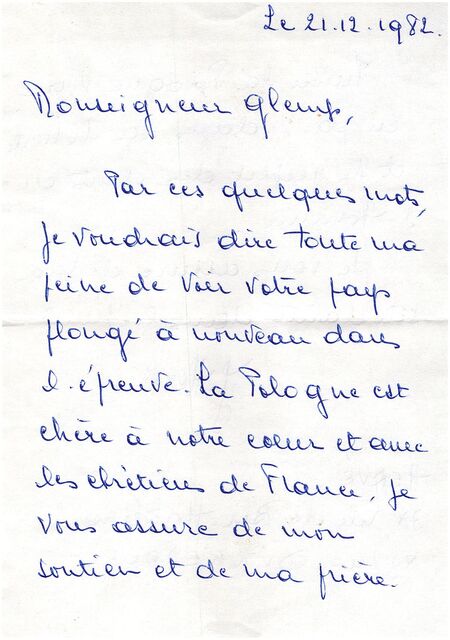 Le 21.12.1982.
Monseigneur Glemp,
Par ces quelques mots,
je voudrais dire toute ma
peine de voir votre pays
plongé à nouveau dans
l'épreuve. La Pologne est
chère à notre coeur et avec
les chrétiens de France, je
vous assure de mon
soutien et de ma prière.